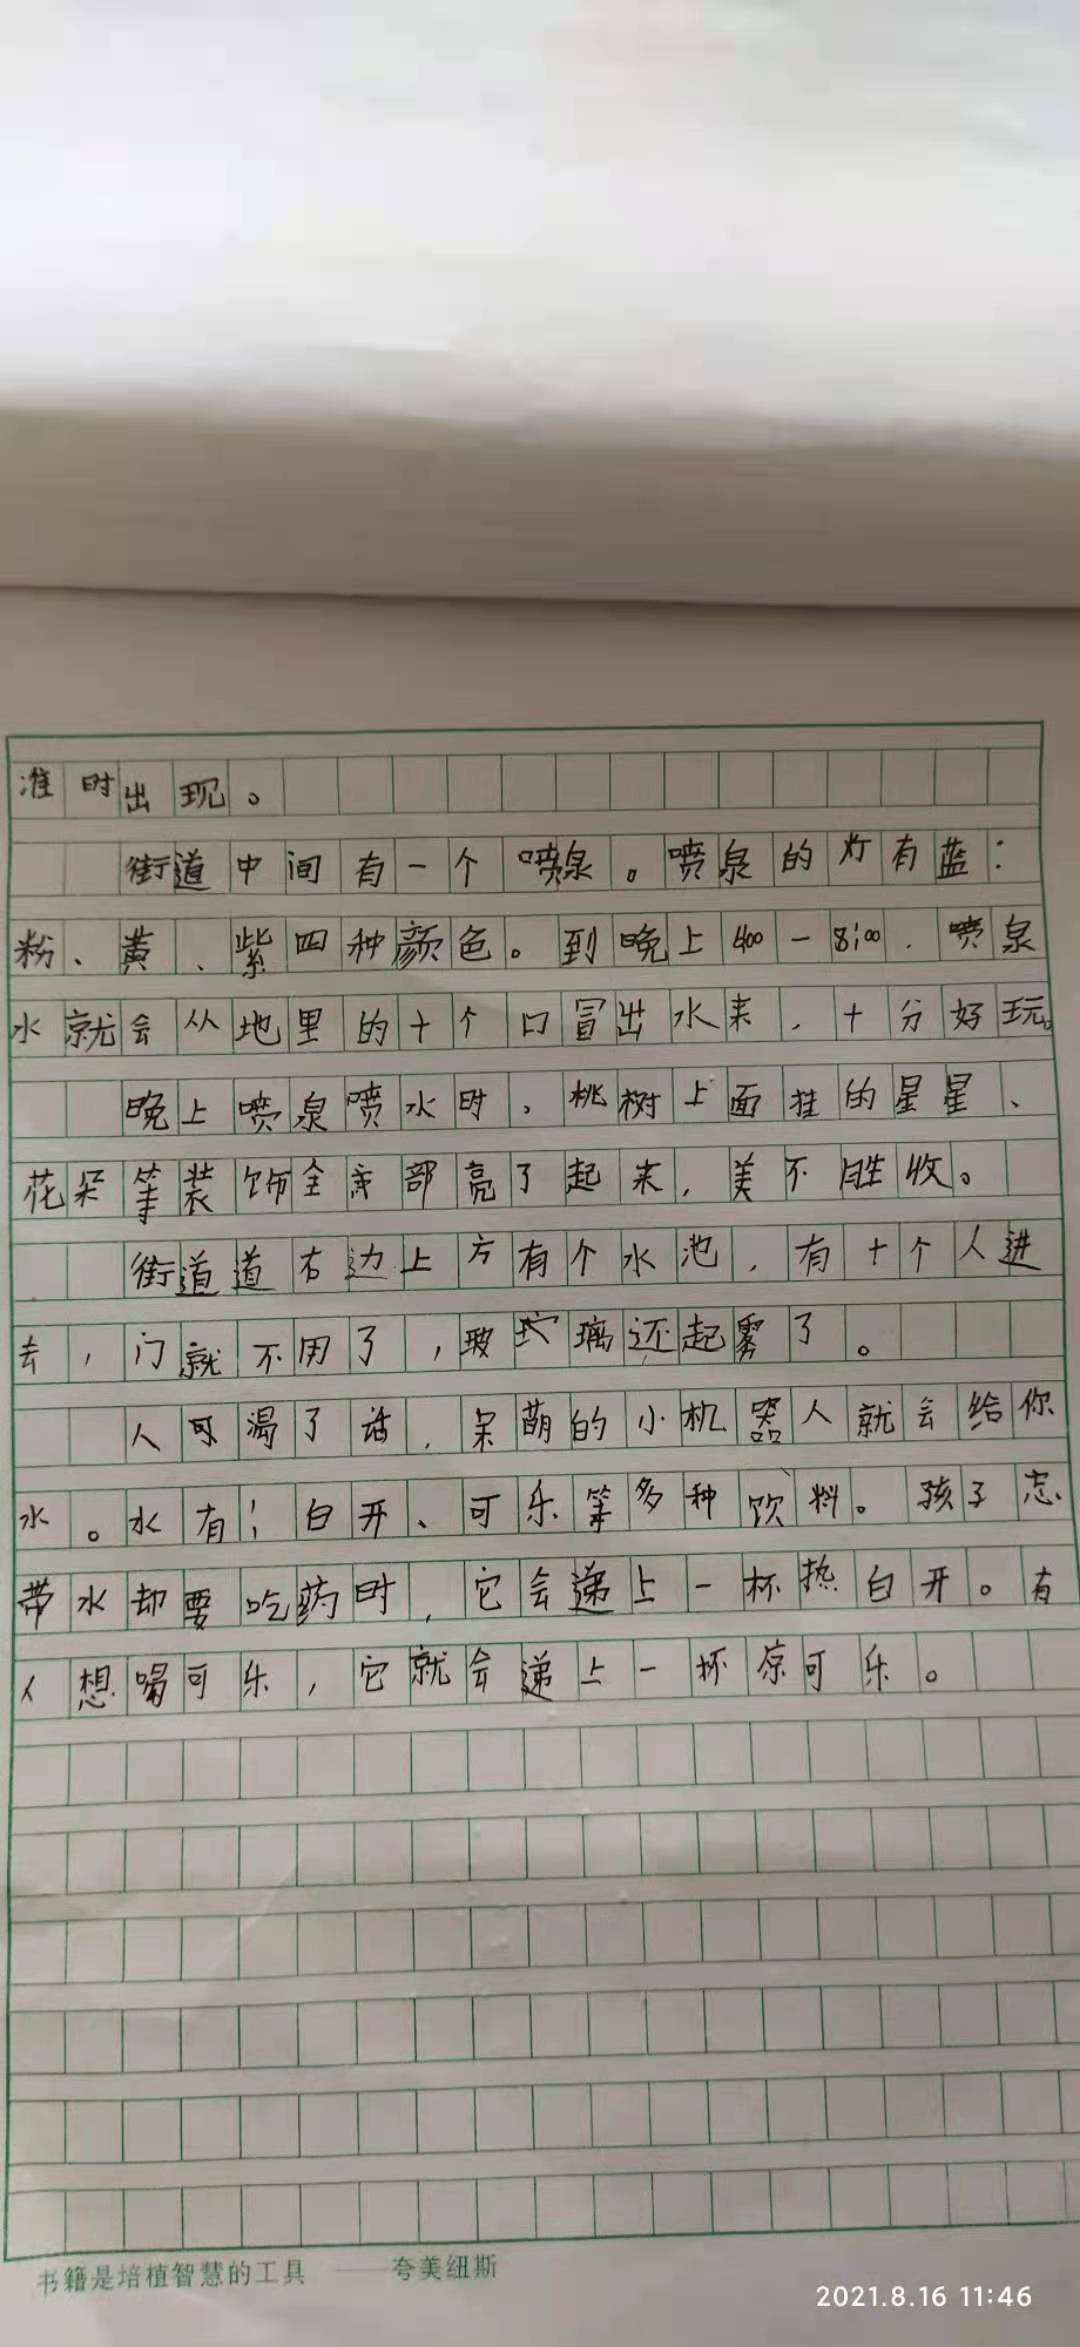 准时出现。
街道中间有一个喷泉。喷泉的灯有蓝：
粉、黄、紫四种颜色。到晚上400－8:00，喷泉
水就会从地里的十个口冒出水来，十分好玩。
晚上喷泉喷水时，桃树上面挂的星星、
花朵等装饰全部亮了起来，美不胜收。
街道道右边上方有个水池，有十个人进
去，门就不用了，玻璃还起雾了。
人可渴了话，呆萌的小机器人就会给你
水。水有：白开、可乐等多种饮料。孩子忘
带水却要吃药时，它会递上一杯热白开。有
人想喝可乐，它就会递上一杯凉可乐。
书籍是培植智慧的工具 ——夸美纽斯
2021.8.16 11:46